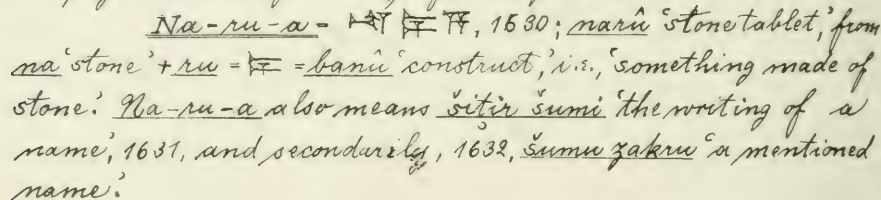 Na-ru-a = 𒈾 𒆕 𒀀, 1630; narû ‘stone tablet,’ from
na ‘stone’ + ru = 𒆕 = banû ‘construct,’ i.e., ‘something made of
stone.’ Na-ru-a also means šitir šumi ‘the writing of a
name’, 1631, and secondarily, 1632, šumu zakru ‘a mentioned
name.’